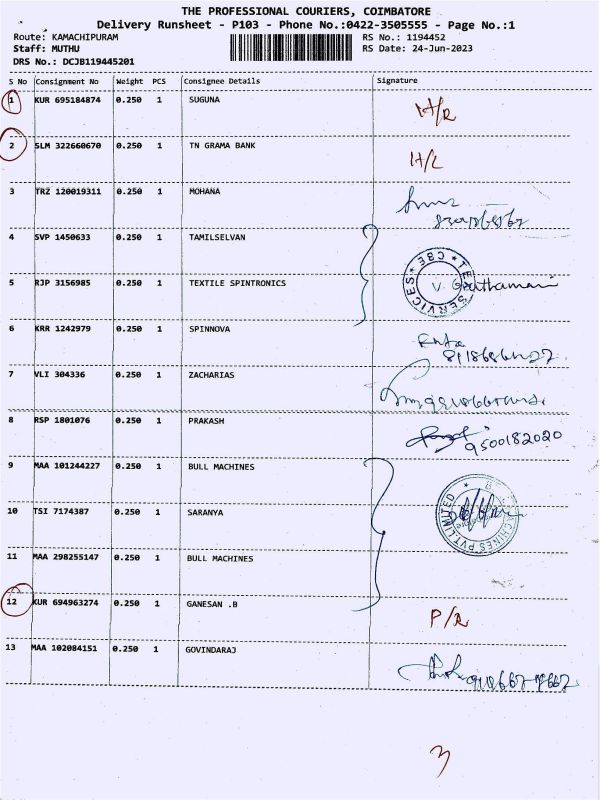 THE PROFESSIONAL COURIERS, COIMBATORE
Delivery Runsheet - P103 - Phone No.:0422-3505555 - Page No.:1
Route: KAMACHIPURAM
Staff: MUTHU
DRS No.: DCJB119445201
RS No.: 1194452
RS Date: 24-Jun-2023
S No Consignment No Weight PCS Consignee Details Signature
1 KUR 695184874 0.250 1 SUGUNA
2 SLM 322660670 0.250 1 TN GRAMA BANK
3 TRZ 120019311 0.250 1 MOHANA
4 SVP 1450633 0.250 1 TAMILSELVAN
5 RJP 3156985 0.250 1 TEXTILE SPINTRONICS
6 KRR 1242979 0.250 1 SPINNOVA
7 VLI 304336 0.250 1 ZACHARIAS
8 RSP 1801076 0.250 1 PRAKASH 9500182020
9 MAA 101244227 0.250 1 BULL MACHINES
10 TSI 7174387 0.250 1 SARANYA
11 MAA 298255147 0.250 1 BULL MACHINES
12 KUR 694963274 0.250 1 GANESAN .B P/R
13 MAA 102084151 0.250 1 GOVINDARAJ
3